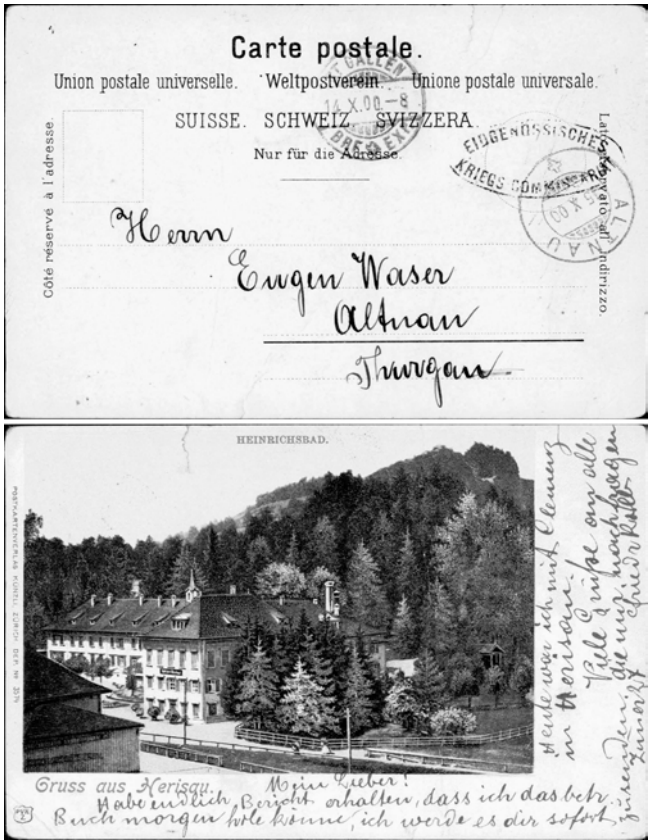 Carte postale.
Union postale universelle. Weltpostverein. Unione postale universale.
SUISSE. SCHWEIZ. SVIZZERA.
Nur für die Adresse.
Côté réservé à l'adresse.
Lato riservato all'indirizzo.
ST. GALLEN
14.X.00-8
BRF. EXP.
EIDGENÖSSISCHES
KRIEGS COMMISSARIAT
ALTNAU
15.X.00
Herrn
Eugen Waser
Altnau
Thurgau
HEINRICHSBAD.
POSTKARTENVERLAG KÜNZLI, ZÜRICH DEP. Nº
Gruss aus Herisau.
Mein Lieber!
Habe endlich Bericht erhalten, dass ich das betr.
Buch morgen hole könne, ich werde es dir sofort
zusenden,
Heute war ich mit Clemenz
in Herisau.
Viele Grüsse an alle
die mir nachfragen